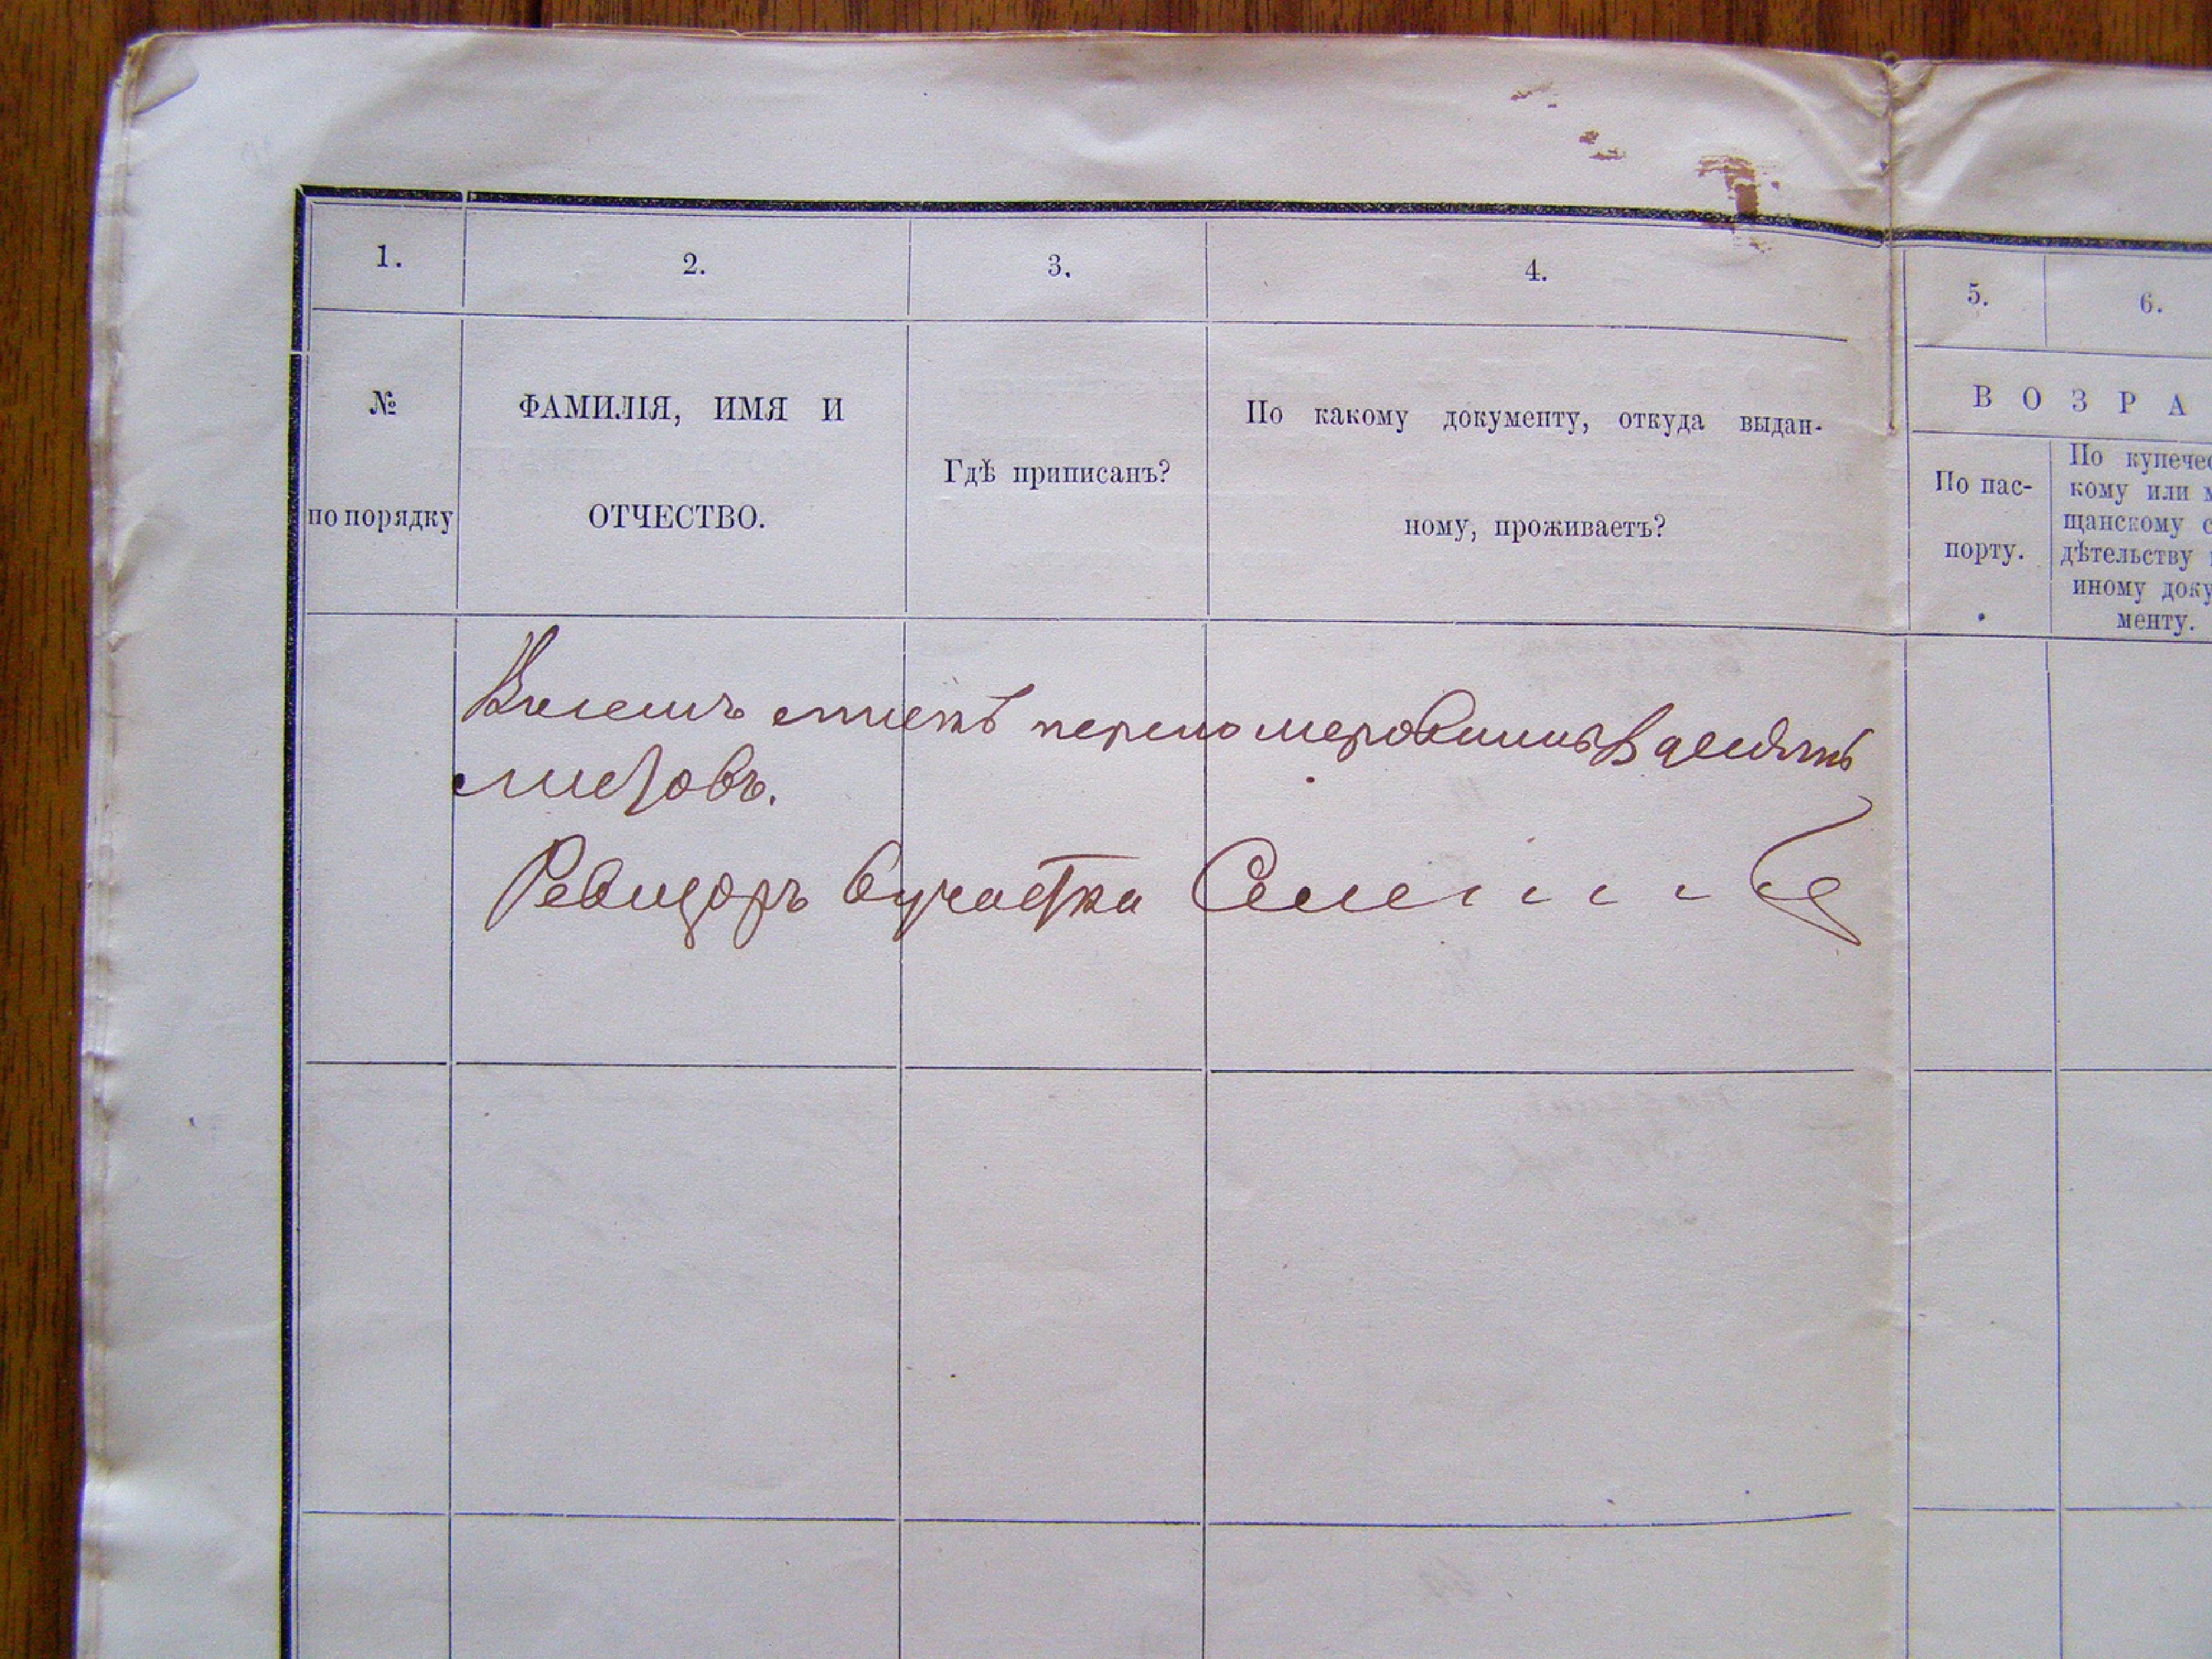 1. 2. 3. 4. 5. 6.
№ по порядку
ФАМИЛІЯ, ИМЯ И ОТЧЕСТВО.
Гдѣ приписанъ?
По какому документу, откуда выдан-
ному, проживаетъ?
ВОЗРА
По пас-
порту.
По купечес
кому или м
щанскому с
дѣтельству
иному доку
менту.
Въ семъ спискѣ перенумеровании
листовъ.
Ревизоръ 6 участка